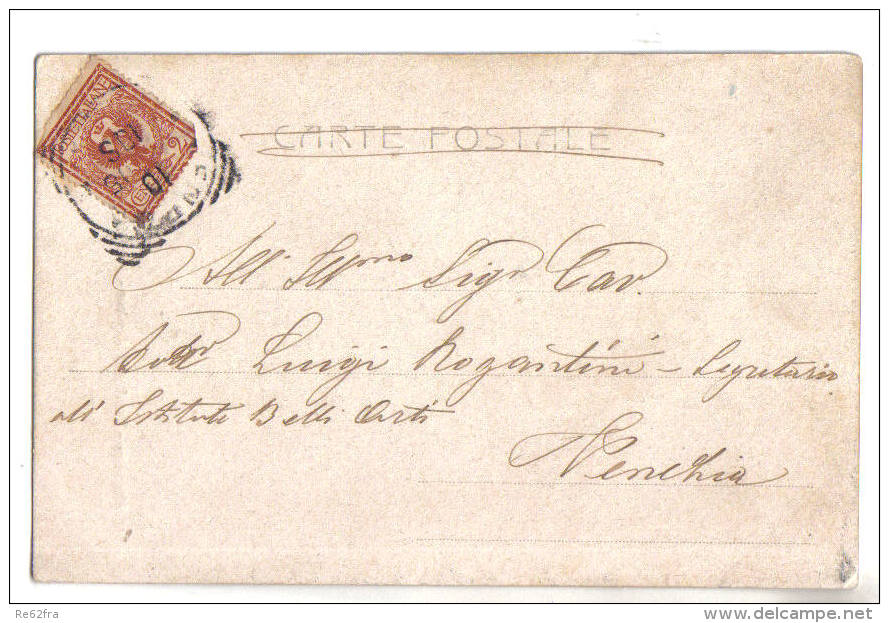 POSTE ITALIANE
2
CARTE POSTALE
All' Illmo Sigr Cav.
Luigi Rogantini - Segretario
all' Istituto Belli Arti
Venezia
Re62fra
www.delcampe.net